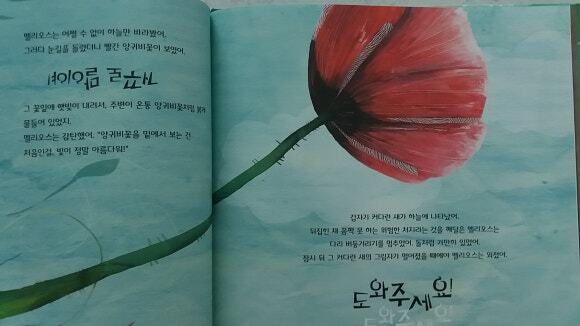 멜리오스는 어쩔 수 없이 하늘만 바라봤어.
그러다 눈길을 돌렸더니 빨간 양귀비꽃이 보였어.
거꾸로 말이야!
그 꽃잎에 햇빛이 내려서, 주변이 온통 양귀비꽃처럼 붉게
물들어 있었지.
멜리오스는 감탄했어. "양귀비꽃을 밑에서 보는 건
처음인걸, 빛이 정말 아름다워!"
갑자기 커다란 새가 하늘에 나타났어.
뒤집힌 채 꼼짝 못 하는 위험한 처지라는 것을 깨달은 멜리오스는
다리 버둥거리기를 멈추었어. 돌처럼 가만히 있었어.
잠시 뒤 그 커다란 새의 그림자가 멀어졌을 때에야 멜리오스는 외쳤어.
도와주세요!
도와주세요!